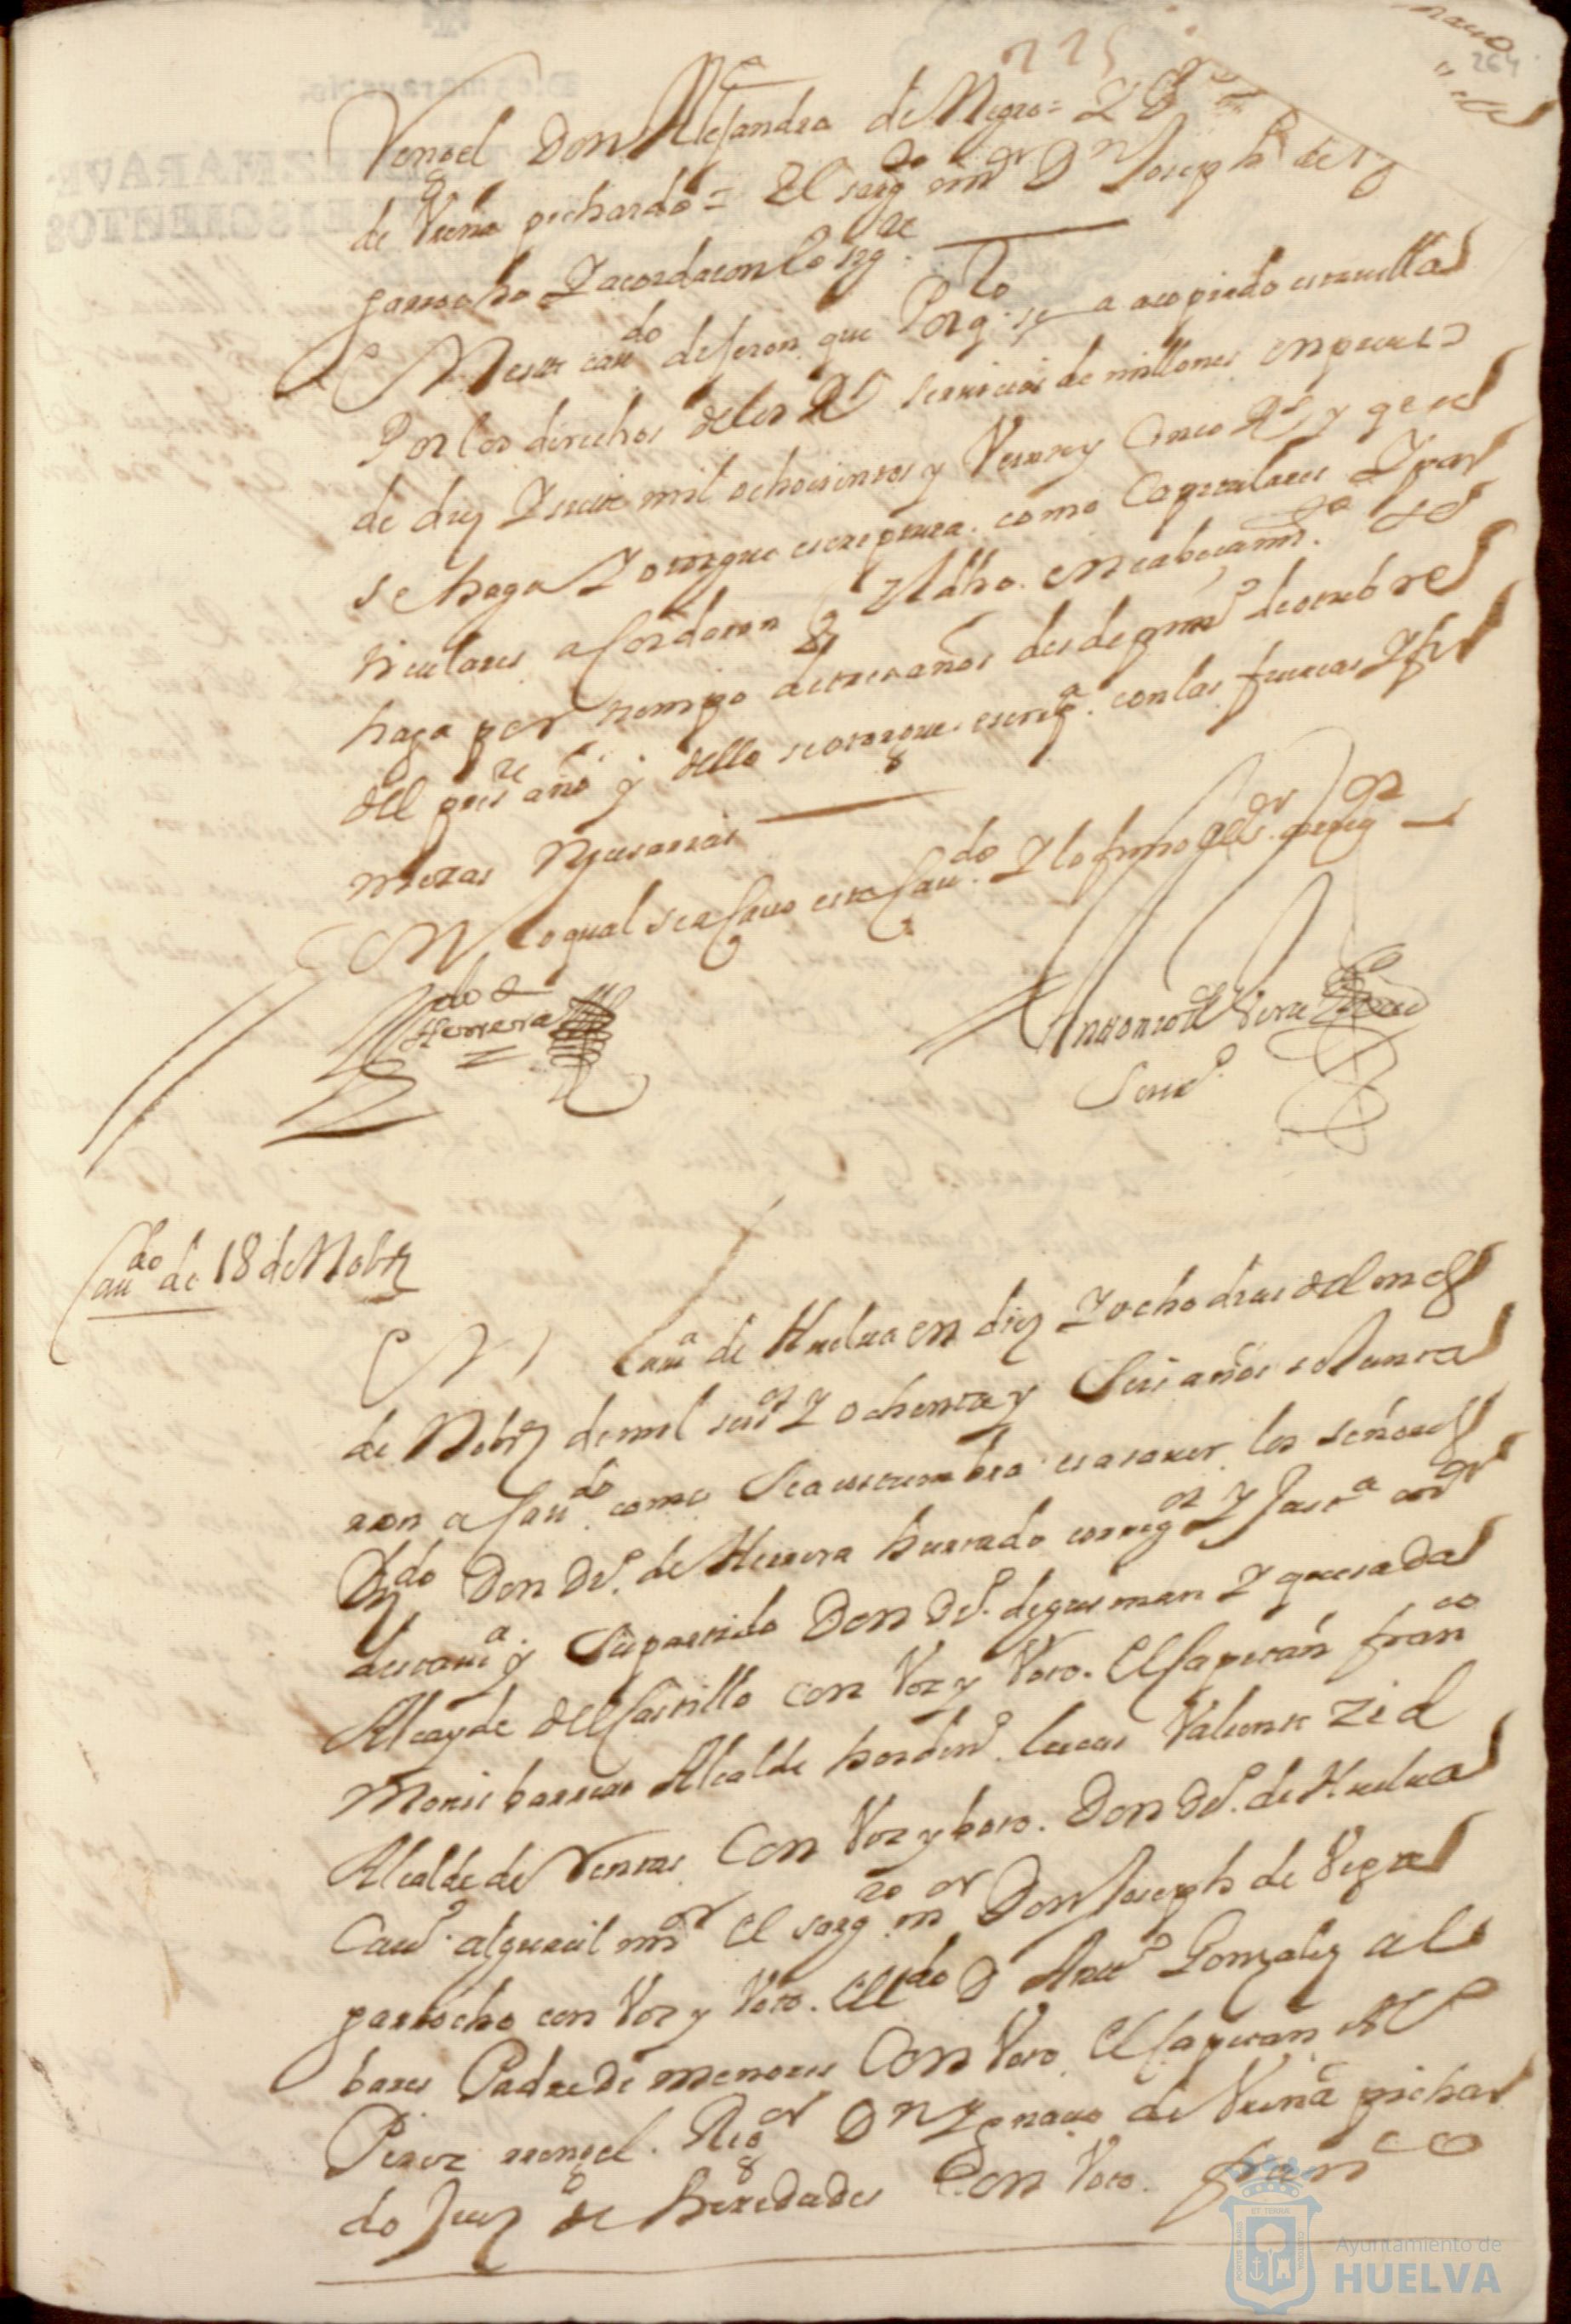 225
264
Rengel Don Alejandro de Negro = Y Dn
de Vrena pichardo = El sargto mor Dn Joseph de
garrocho Y acordaron lo sigte
En este caudo dijeron que Por qto se a acopiado esta villa
Por los derechos de los Rs servicios de millones en precio
de diez Y siete mil ochosientos y Veinte y Cinco Rs y que se
se haga Y otorgue escreptura como Capitulares Y par
ticulares acordaron q el dho encabesamto se
haga por tiempo de tres años desde primo de otubre
del preste año y dello se otorgue escripa con las fuersas Y fir
mezas Nesesarias
En lo qual se acauo este Caudo Y lo firmo el sr corregor
Ldo
Herrera
Antonio de Vera
Scriuo
Caudo de 18 de Nobre
En la uilla de Huelua en diez Y ocho dias del mes
de Nobre de mil seiso Y ochenta y Seis años se Junta
ron a Caudo como Se acostumbra es a sauer los señores
Lizdo Don Do de Herrera hurtado corregor Y Justa mor
desta villa y Su partido Don Do de gusman Y quesada
Alcayde del Castillo con Voz y Voto. El Capitán franco
Monis barrero Alcalde hordino lucas Valiente Zid
Alcalde de Rentas Con Voz y boto. Don Do de Huelua
Cauo alguacil mor El sargto mor Don Joseph de Vega
garrocho con Voz y Voto. El Ldo D Anto Gonzalez al
bares Padre de menores Con Voto El Capitan
Perez rengel. Regor Dn Ygnacio de Vrena pichar
do Juez de heredades Con Voto. franco
Ayuntamiento de
HUELVA